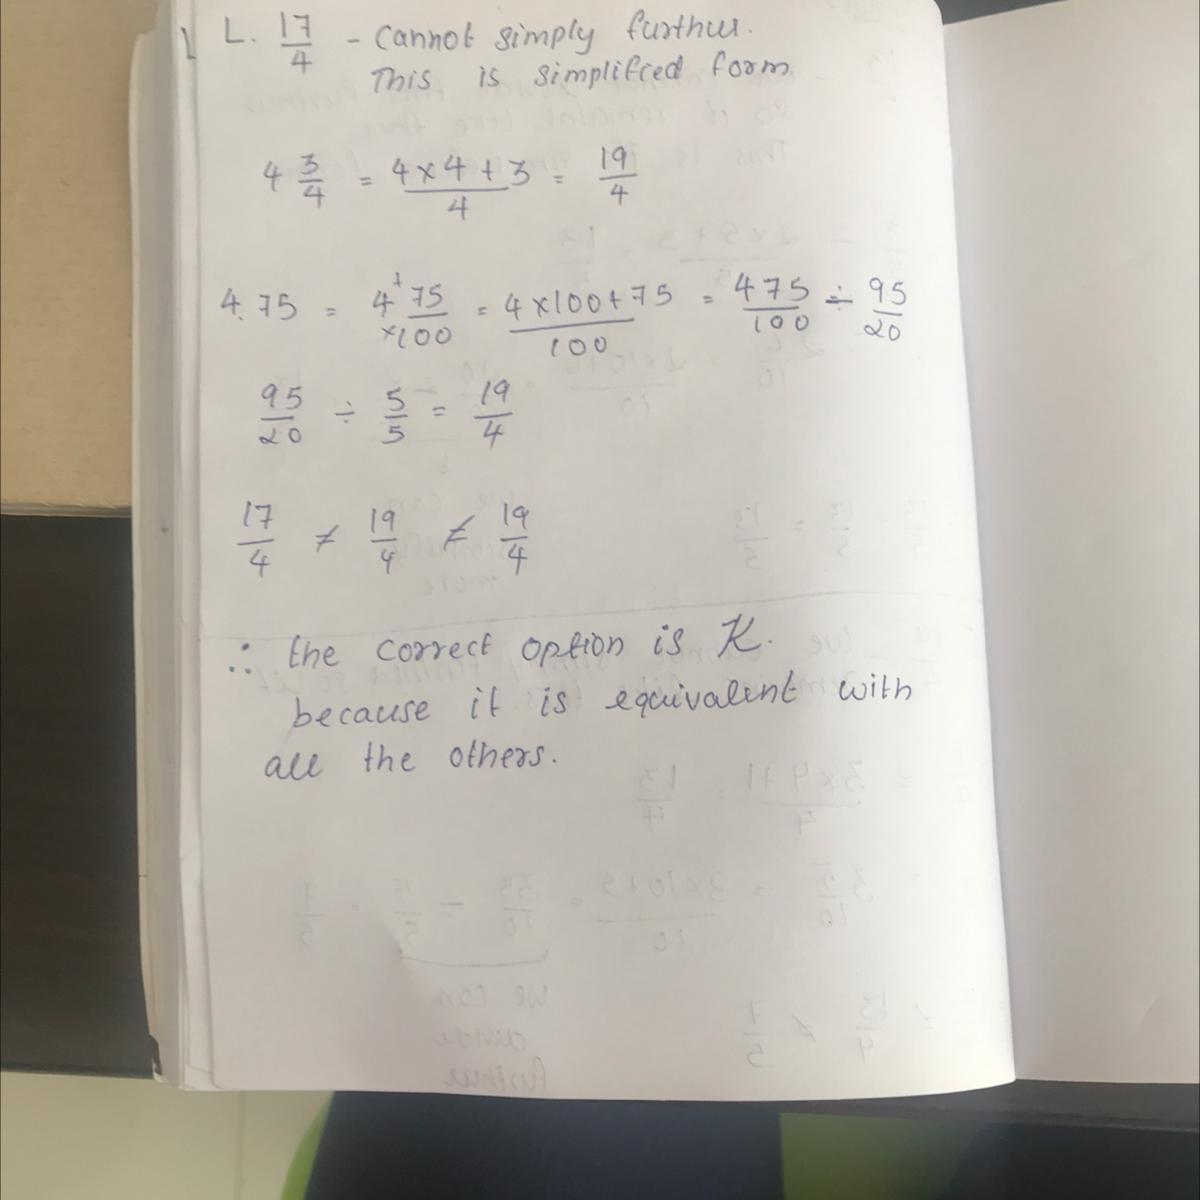 L. 17/4 - Cannot simply further.
This is simplified form
4 3/4 = 4×4+3/4 = 19/4
4.75 = 4 + 75/×100 = 4×100+75/100 = 475/100 ÷ 95/20
95/20 ÷ 5/5 = 19/4
17/4 ≠ 19/4 ≠ 19/4
∴ the correct option is K.
because it is equivalent with
all the others.